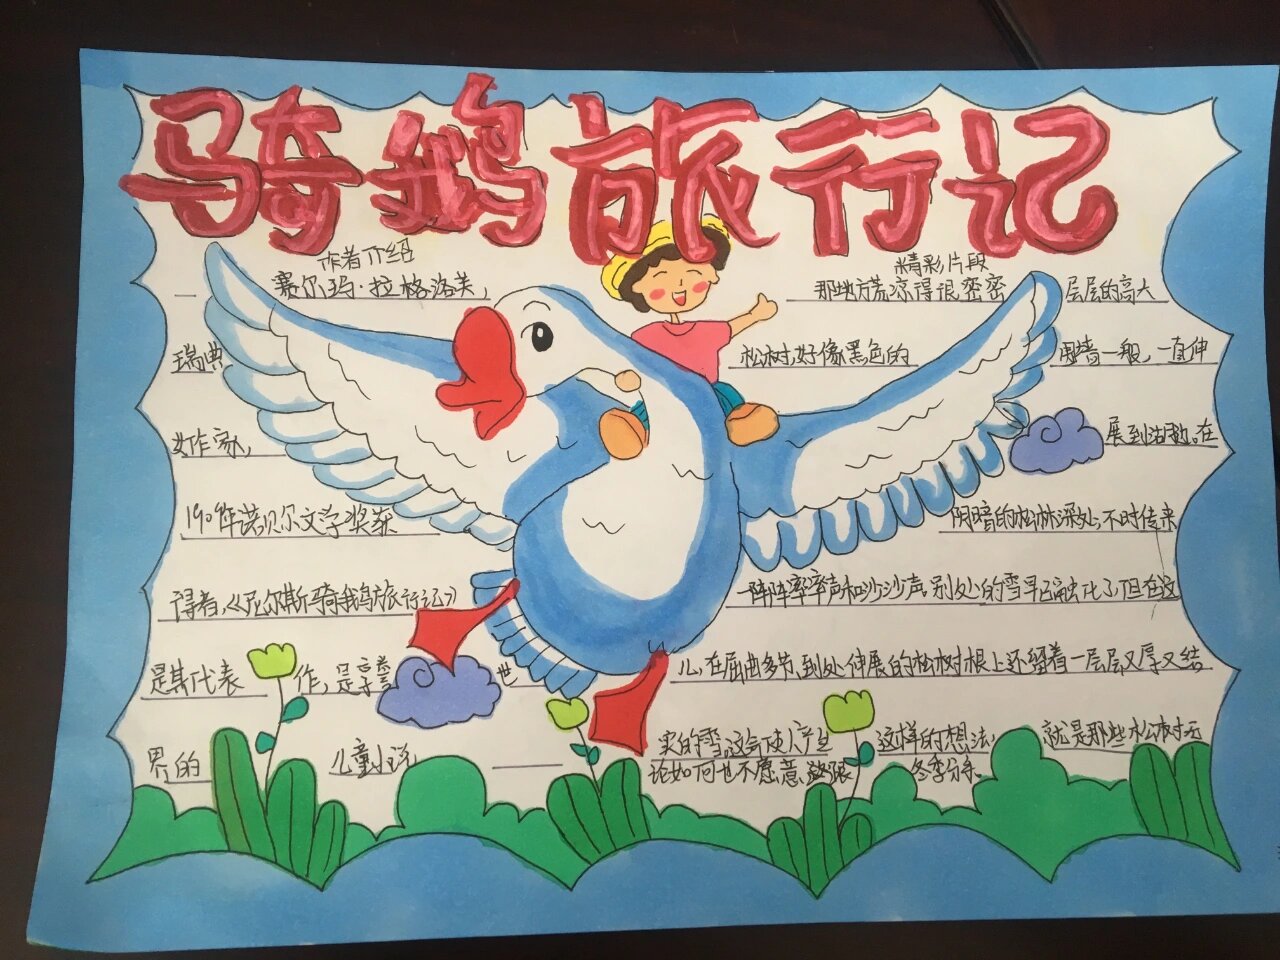 骑鹅旅行记
作者介绍
赛尔玛·拉格洛芙,
瑞典
女作家,
1909年诺贝尔文学奖获
得者,《尼尔斯骑鹅旅行记》
是其代表作,是享誉世
界的儿童小说,
精彩片段
那地方荒凉得很密密层层的高大
松树,好像黑色的围墙一般,一直伸
展到湖边。在
阴暗的松林深处,不时传来
一阵阵窣窣声和沙沙声,别处的雪早已融化了但在这
儿,在屈曲多节,到处伸展的松树根上还留着一层层又厚又结
实的雪,这会使人产生这样的想法,就是那些松树无
论如何也不愿意跟冬季分系。